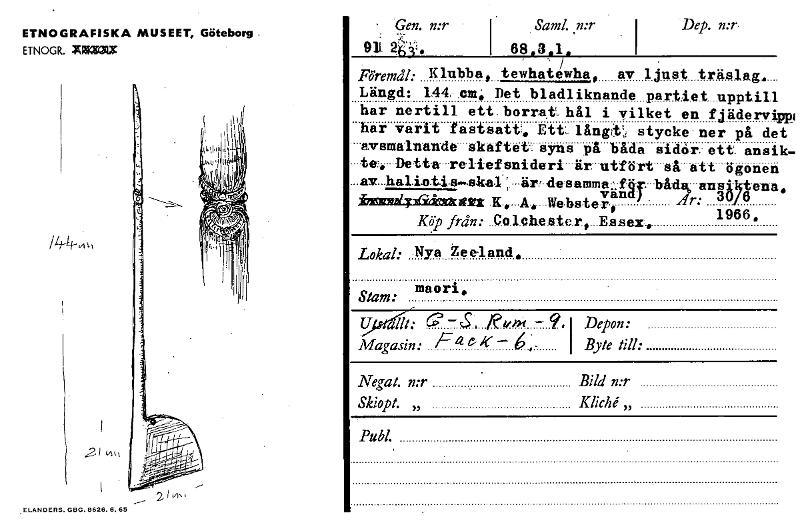 ETNOGRAFISKA MUSEET, Göteborg
ETNOGR.
144 cm
21 cm
21 cm
ELANDERS. GBG. 8526. 6. 65
Gen. n:r Saml. n:r Dep. n:r
68.3.1.
Föremål: Klubba, tewhatewha, av ljust träslag.
Längd: 144 cm. Det bladliknande partiet upptill
har nertill ett borrat hål i vilket en fjädervipp
har varit fastsatt. Ett långt stycke ner på det
avsmalnande skaftet syns på båda sidor ett ansik-
te. Detta reliefsnideri är utfört så att ögonen
av haliotis-skal är desamma för båda ansiktena.
K. A. Webster, vänd) År: 30/6
Köp från: Colchester, Essex. 1966.
Lokal: Nya Zeeland.
Stam: maori.
Utställt: G-S. Rum-9. Depon:
Magasin: Fack-6. Byte till:
Negat. n:r Bild n:r
Skiopt. „ Kliché „
Publ.